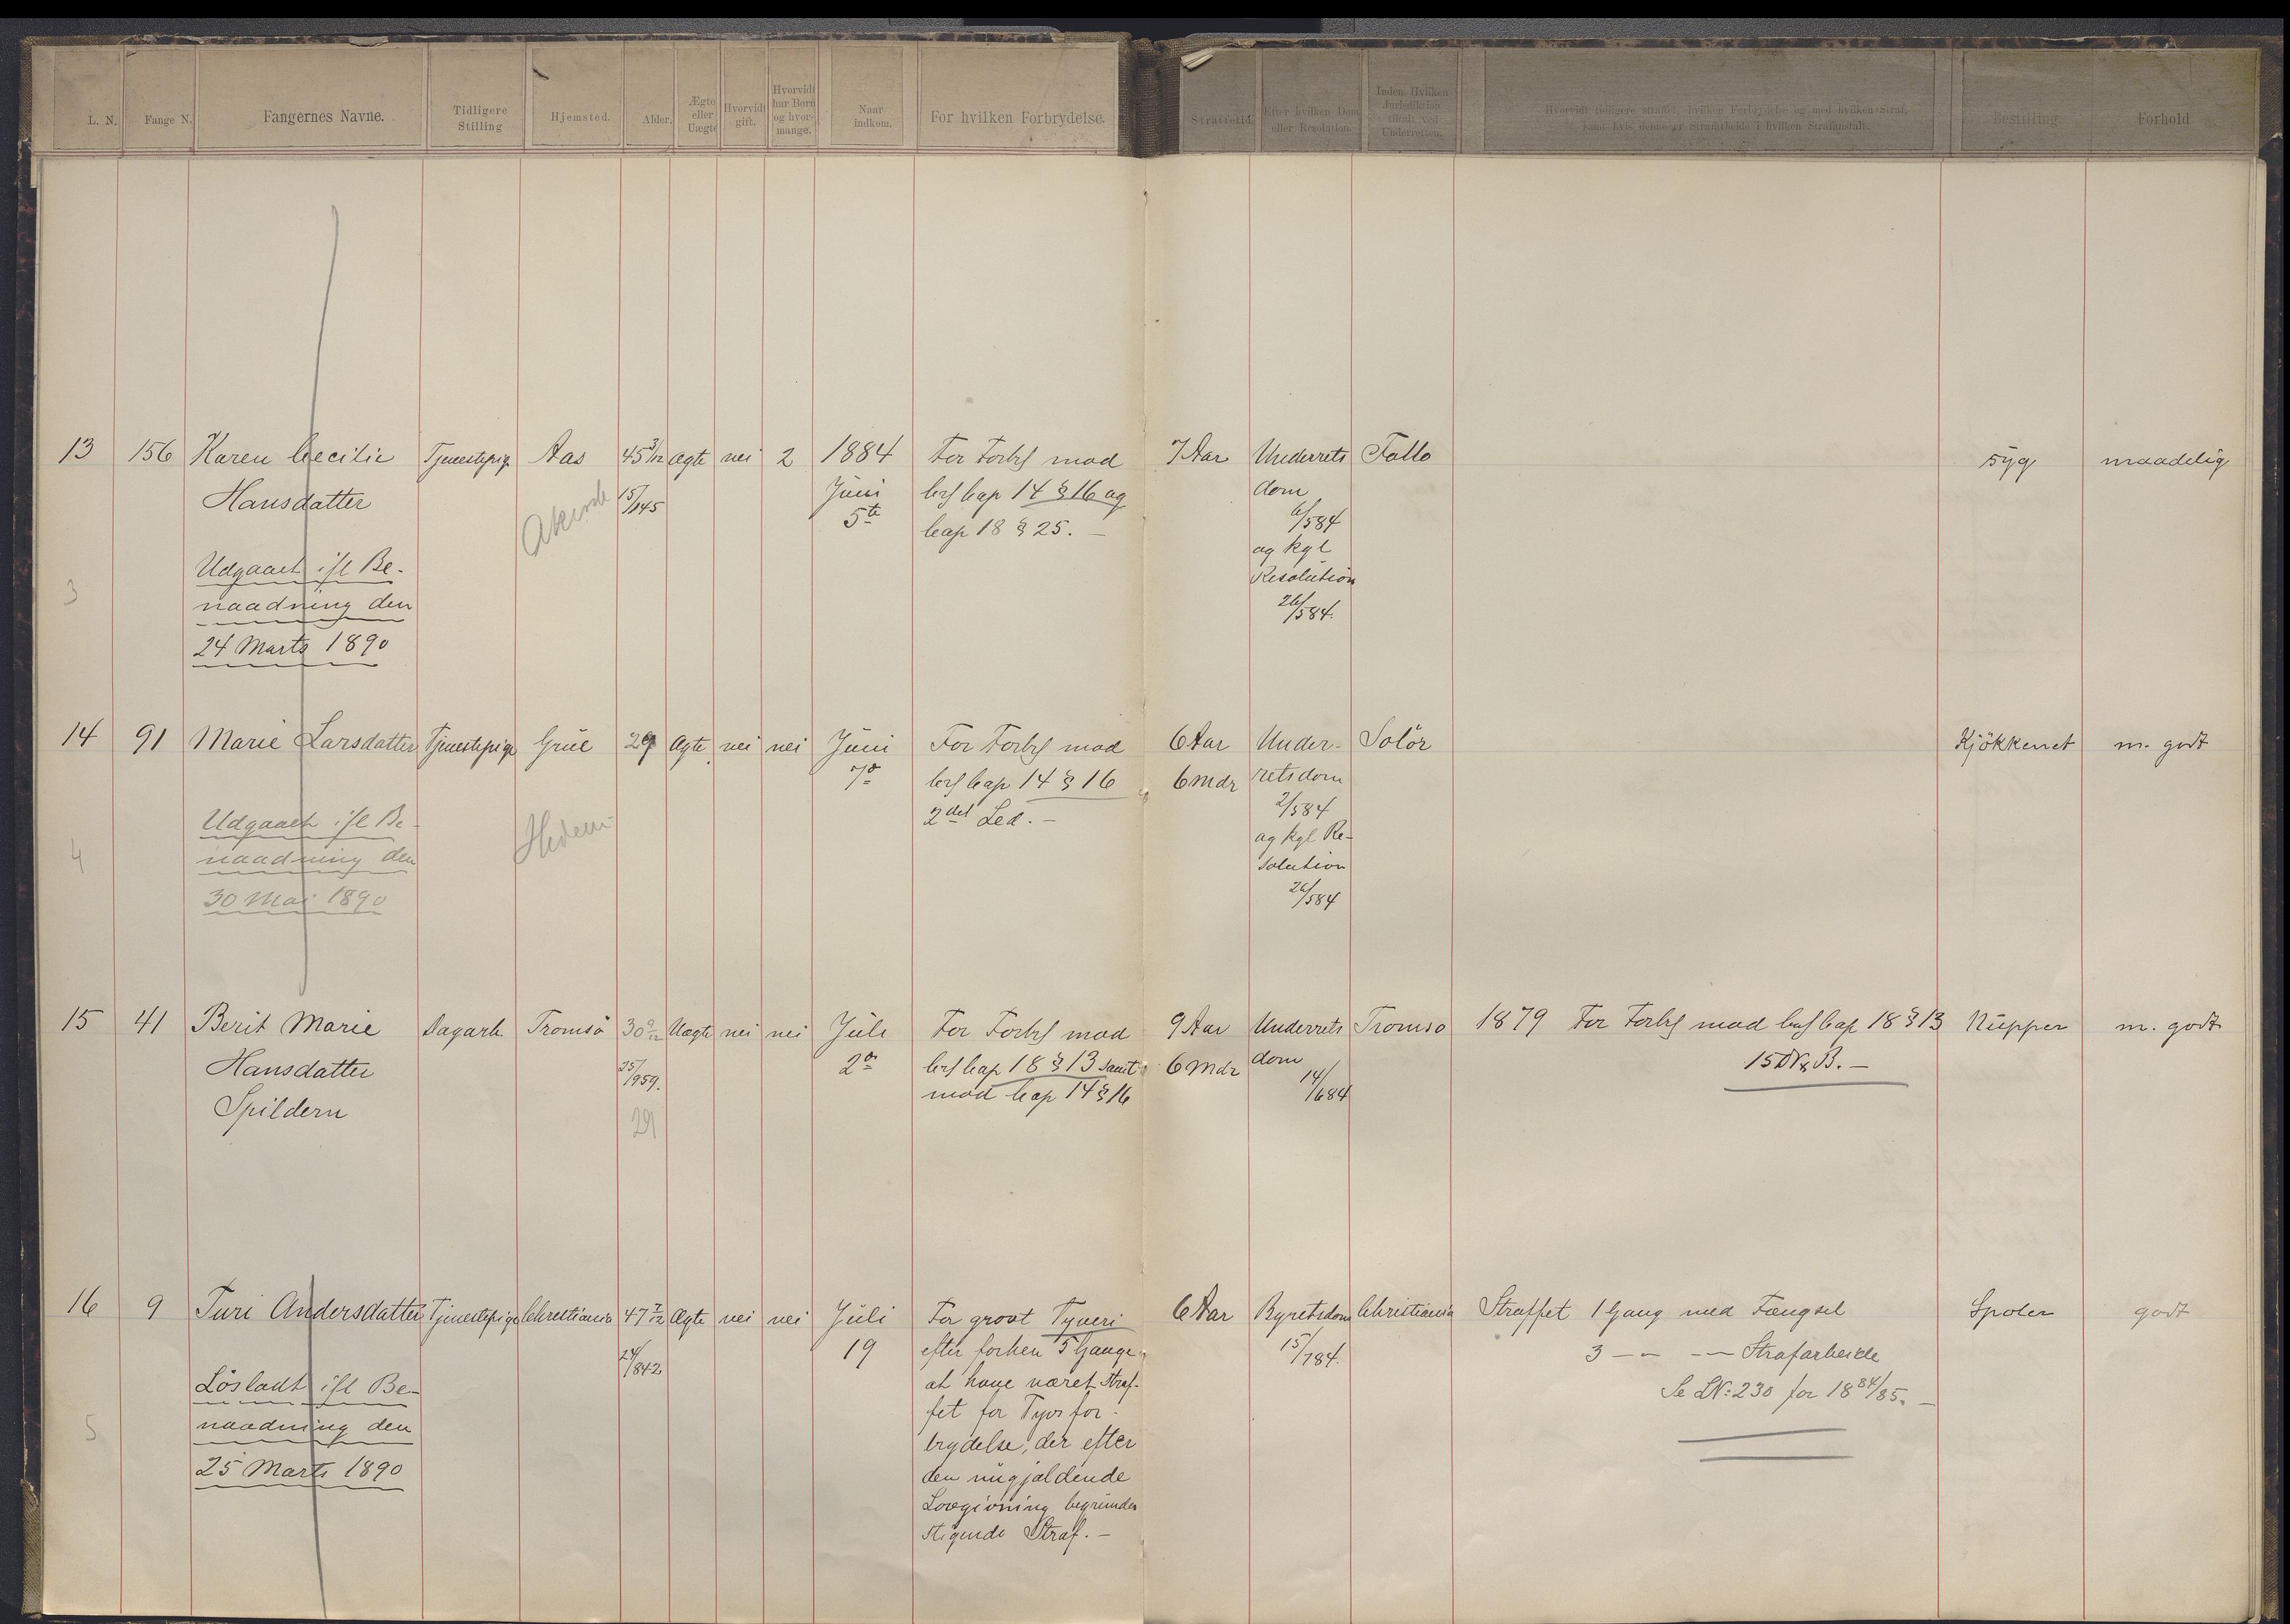 L. N.
Fange N.
Fangernes Navne.
Tidligere
Stilling
Hjemsted.
Alder.
Ægte
eller
Uægte
Hvorvidt
gift.
Hvorvidt
har Børn
og hvor-
mange.
Naar
indkom.
For hvilken Forbrydelse.
Straffetid.
Efter hvilken Dom
eller Resolution.
Inden Hvilken
Jurisdiktion
tiltalt ved
Underretten.
Hvorvidt tidligere straffet, hvilken Forbrydelse og med hvilken Straf,
samt hvis denne er Strafarbeide i hvilken Strafanstalt.
Bestilling
Forhold
13 156 Karen Cecilie Tjenestepige Aas 45 3/12 ægte nei 2 1884 For Forbr mod 7 Aar Underrets Follo syg maadelig
Hansdatter 15/145 Juni Crf Cap 14 § 16 og dom
Akersh 5te Cap 18 § 25. — 6/584
Udgaaet ifl Be- og kgl
3 naadning den Resolution
24 Marts 1890 26/584.
14 91 Marie Larsdatter Tjenestepige Grue 29 ægte nei nei Juni For Forbr mod 6 Aar Under- Solör Kjökkenet m. godt
7de Crf Cap 14 § 16 6 Mdr retsdom
Udgaaet ifl Be- Hedem- 2det Led. — 2/584
4 naadning den og kgl Re-
30 Mai 1890 solution
26/584
15 41 Berit Marie Dagarb. Tromsö 30 9/12 Uægte nei nei Juli For Forbr mod 9 Aar Underrets Tromsö 1879 For Forbr mod Crf Cap 18 § 13 Nupper m. godt
Hansdatter 25/959. 2den Crf Cap 18 § 13 samt 6 Mdr dom 15 D V & B. —
Spildern 29 mod Cap 14 § 16 14/684
16 9 Turi Andersdatter Tjenestepige Christiania 47 7/12 Ægte nei nei Juli For grovt Tyveri 6 Aar Byretsdom Christiania Straffet 1 Gang med Fængsel Spoler godt
24/842 19 efter forhen 5 Gange 15/784. 3 — — — — Strafarbeide
Lösladt ifl Be- at have været straf- Se LN: 230 for 18 84/85. —
5 naadning den fet for Tyvsfor-
25 Marts 1890 brydelse, der efter
den nugjældende
Lovgivning begrunder
stigende Straf. —